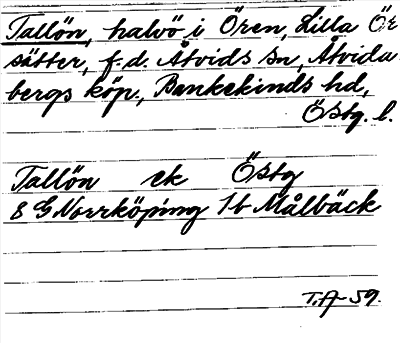 Tallön, halvö i Ören, Lilla Ör
sätter, f.d. Åtvids sn, Åtvida
bergs köp., Bankekinds hd,
Östg. l.
Tallön ek Östg
8 G Norrköping 1b Målbäck
T.A-59.